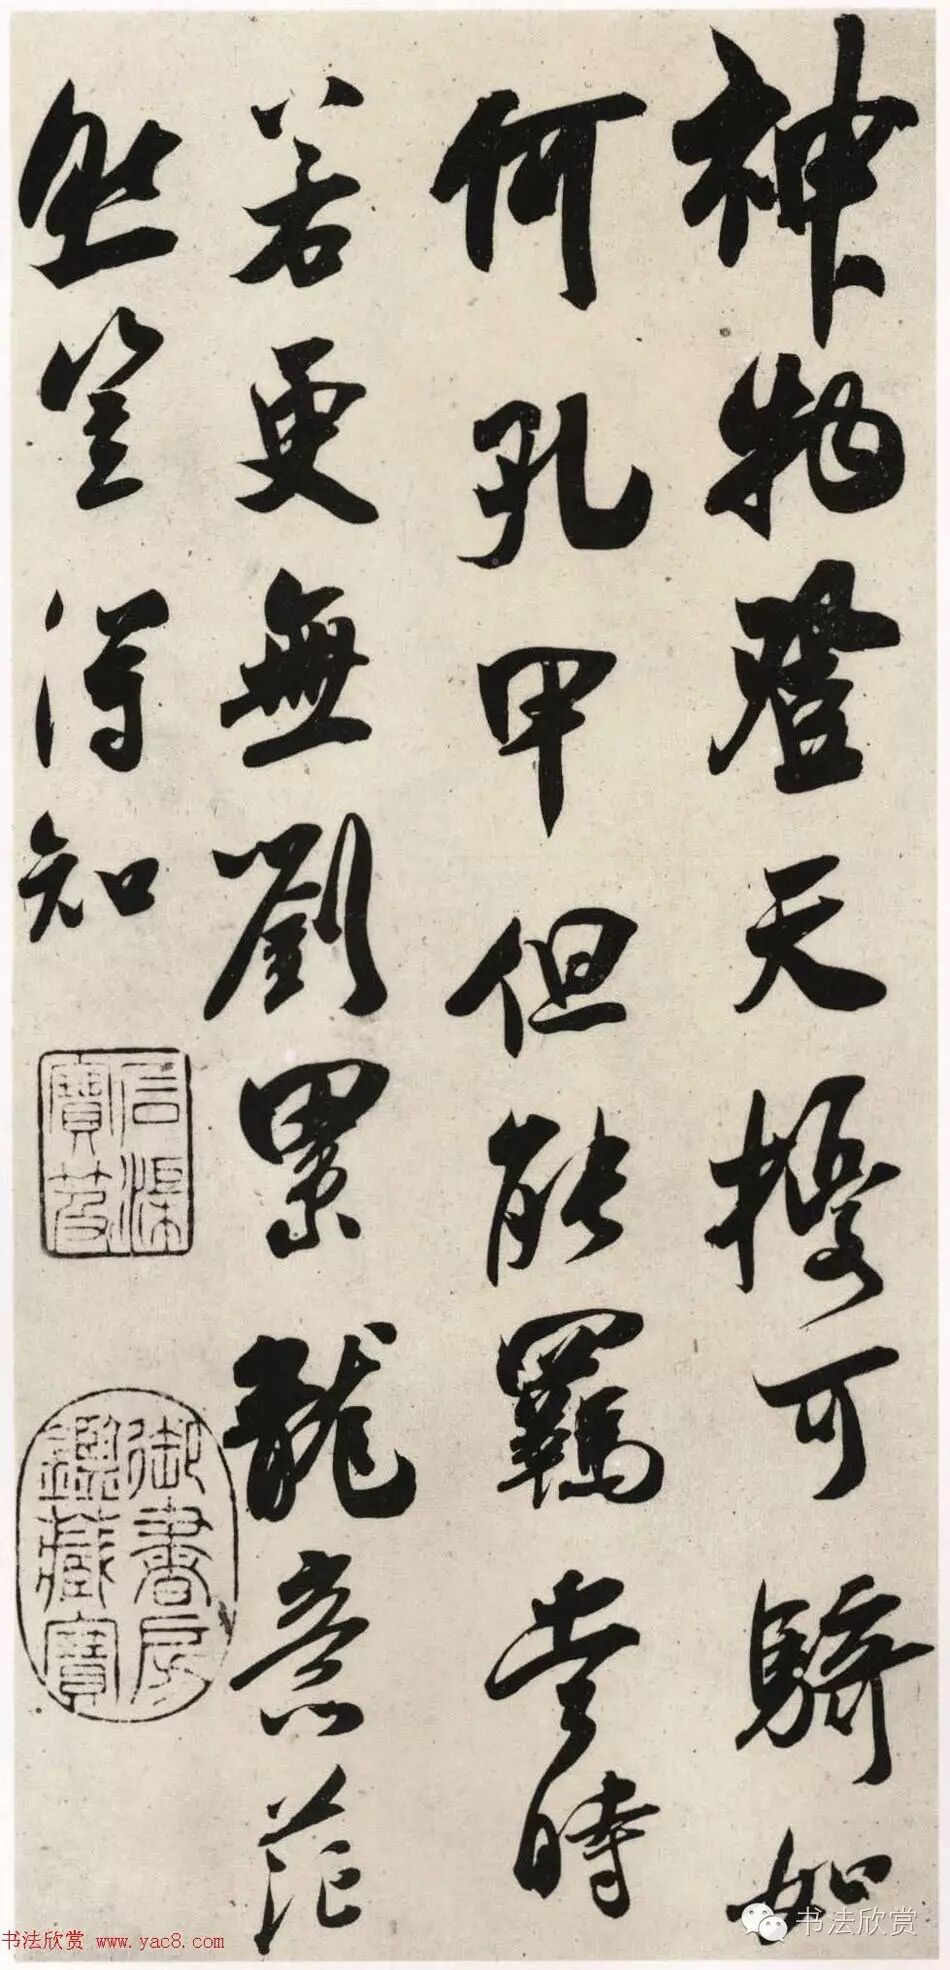 神物登天擾可騎如
何孔甲但能羈當時
若更無劉累龍意茫
然豈得知
寶笈
御書房
鑑藏寶
书法欣赏 www.yac8.com
书法欣赏